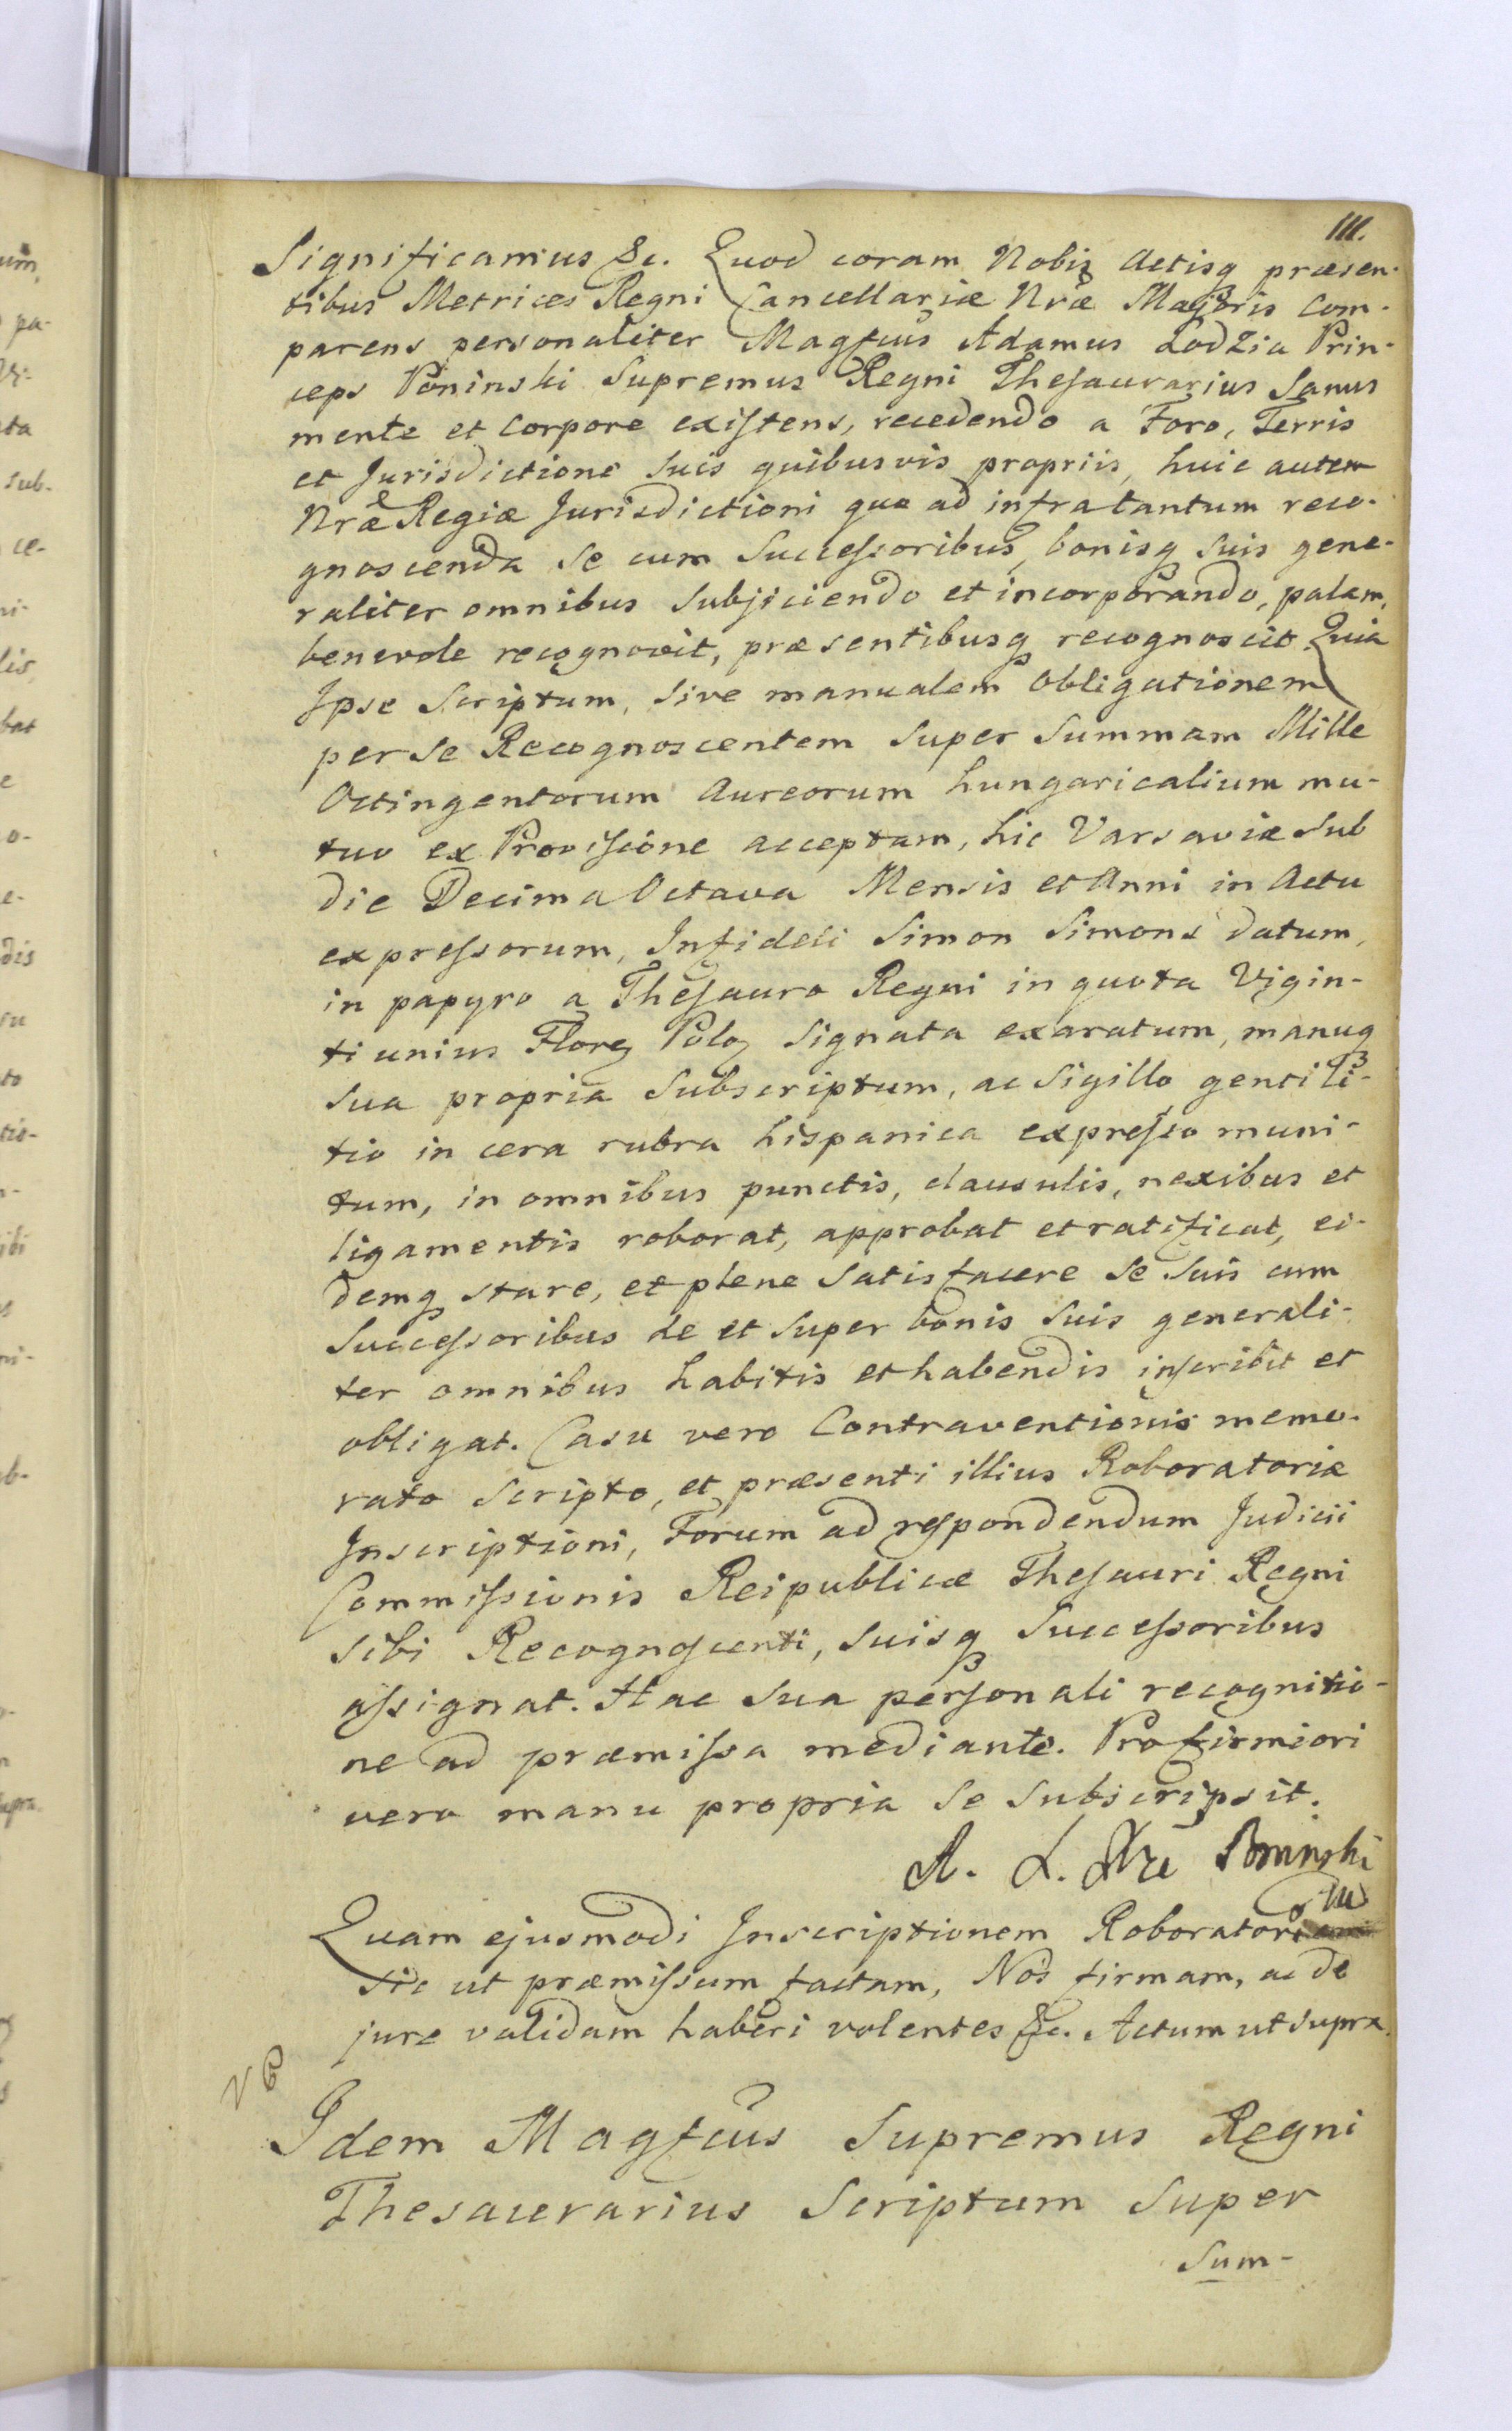 111.
Significamus &c. Quod coram Nobis Actisq præsen-
tibus Metrices Regni Cancellariæ Nræ Majoris Com-
parens personaliter Magfcus Adamus Lodzia Prin-
ceps Poninski Supremus Regni Thesaurarius Sanus
mente et Corpore existens, recedendo a Foro, Terris
et Jurisdictione suis quibusvis propriis, huic autem
Nræ Regiæ Jurisdictioni quo ad infra tantum reco-
gnoscenda se cum Successoribus, bonisq suis gene-
raliter omnibus Subjiciendo et incorporando, palam,
benevole recognovit, præsentibusq recognoscit. Quia
Ipse Scriptum, sive manualem Obligationem
per se Recognoscentem Super Summam Mille
Octingentorum Aureorum hungaricalium mu-
tuo ex Provisione acceptam, hic Varsaviæ Sub
die Decima Octava Mensis et Anni in Actu
expressorum, Infideli Simon Simons datum,
in papyro a Thesauro Regni in quota Vigin-
ti unius Flor Pol Signata exaratum, manuq
sua propria Subscriptum, ac Sigillo gentili-
tio in cera rubra hispanica expresso muni-
tum, in omnibus punctis, clausulis, nexibus et
ligamentis roborat, approbat et ratificat, ei-
demq stare, et plene Satisfacere Se Suis cum
Successoribus de et Super bonis Suis generali-
ter omnibus habitis et habendis inscribit et
obligat. Casu vero Contraventionis memo-
rato Scripto, et præsenti illius Roboratoriæ
Inscriptioni, Forum ad respondendum Judicii
Commissionis Reipublicæ Thesauri Regni
sibi Recognoscenti, Suisq Successoribus
assignat. Hac Sua personali recognitio-
ne ad præmissa mediante. Pro firmiori
vero manu propria Se Subscripsit.
A. L. Poninski
Quam ejusmodi Inscriptionem Roboratoriam
sic ut præmissum factam, Nos firmam, ac de
jure validam haberi volentes &c. Actum ut Supra.
Idem Magfcus Supremus Regni
Thesaurarius Scriptum Super
Sum-